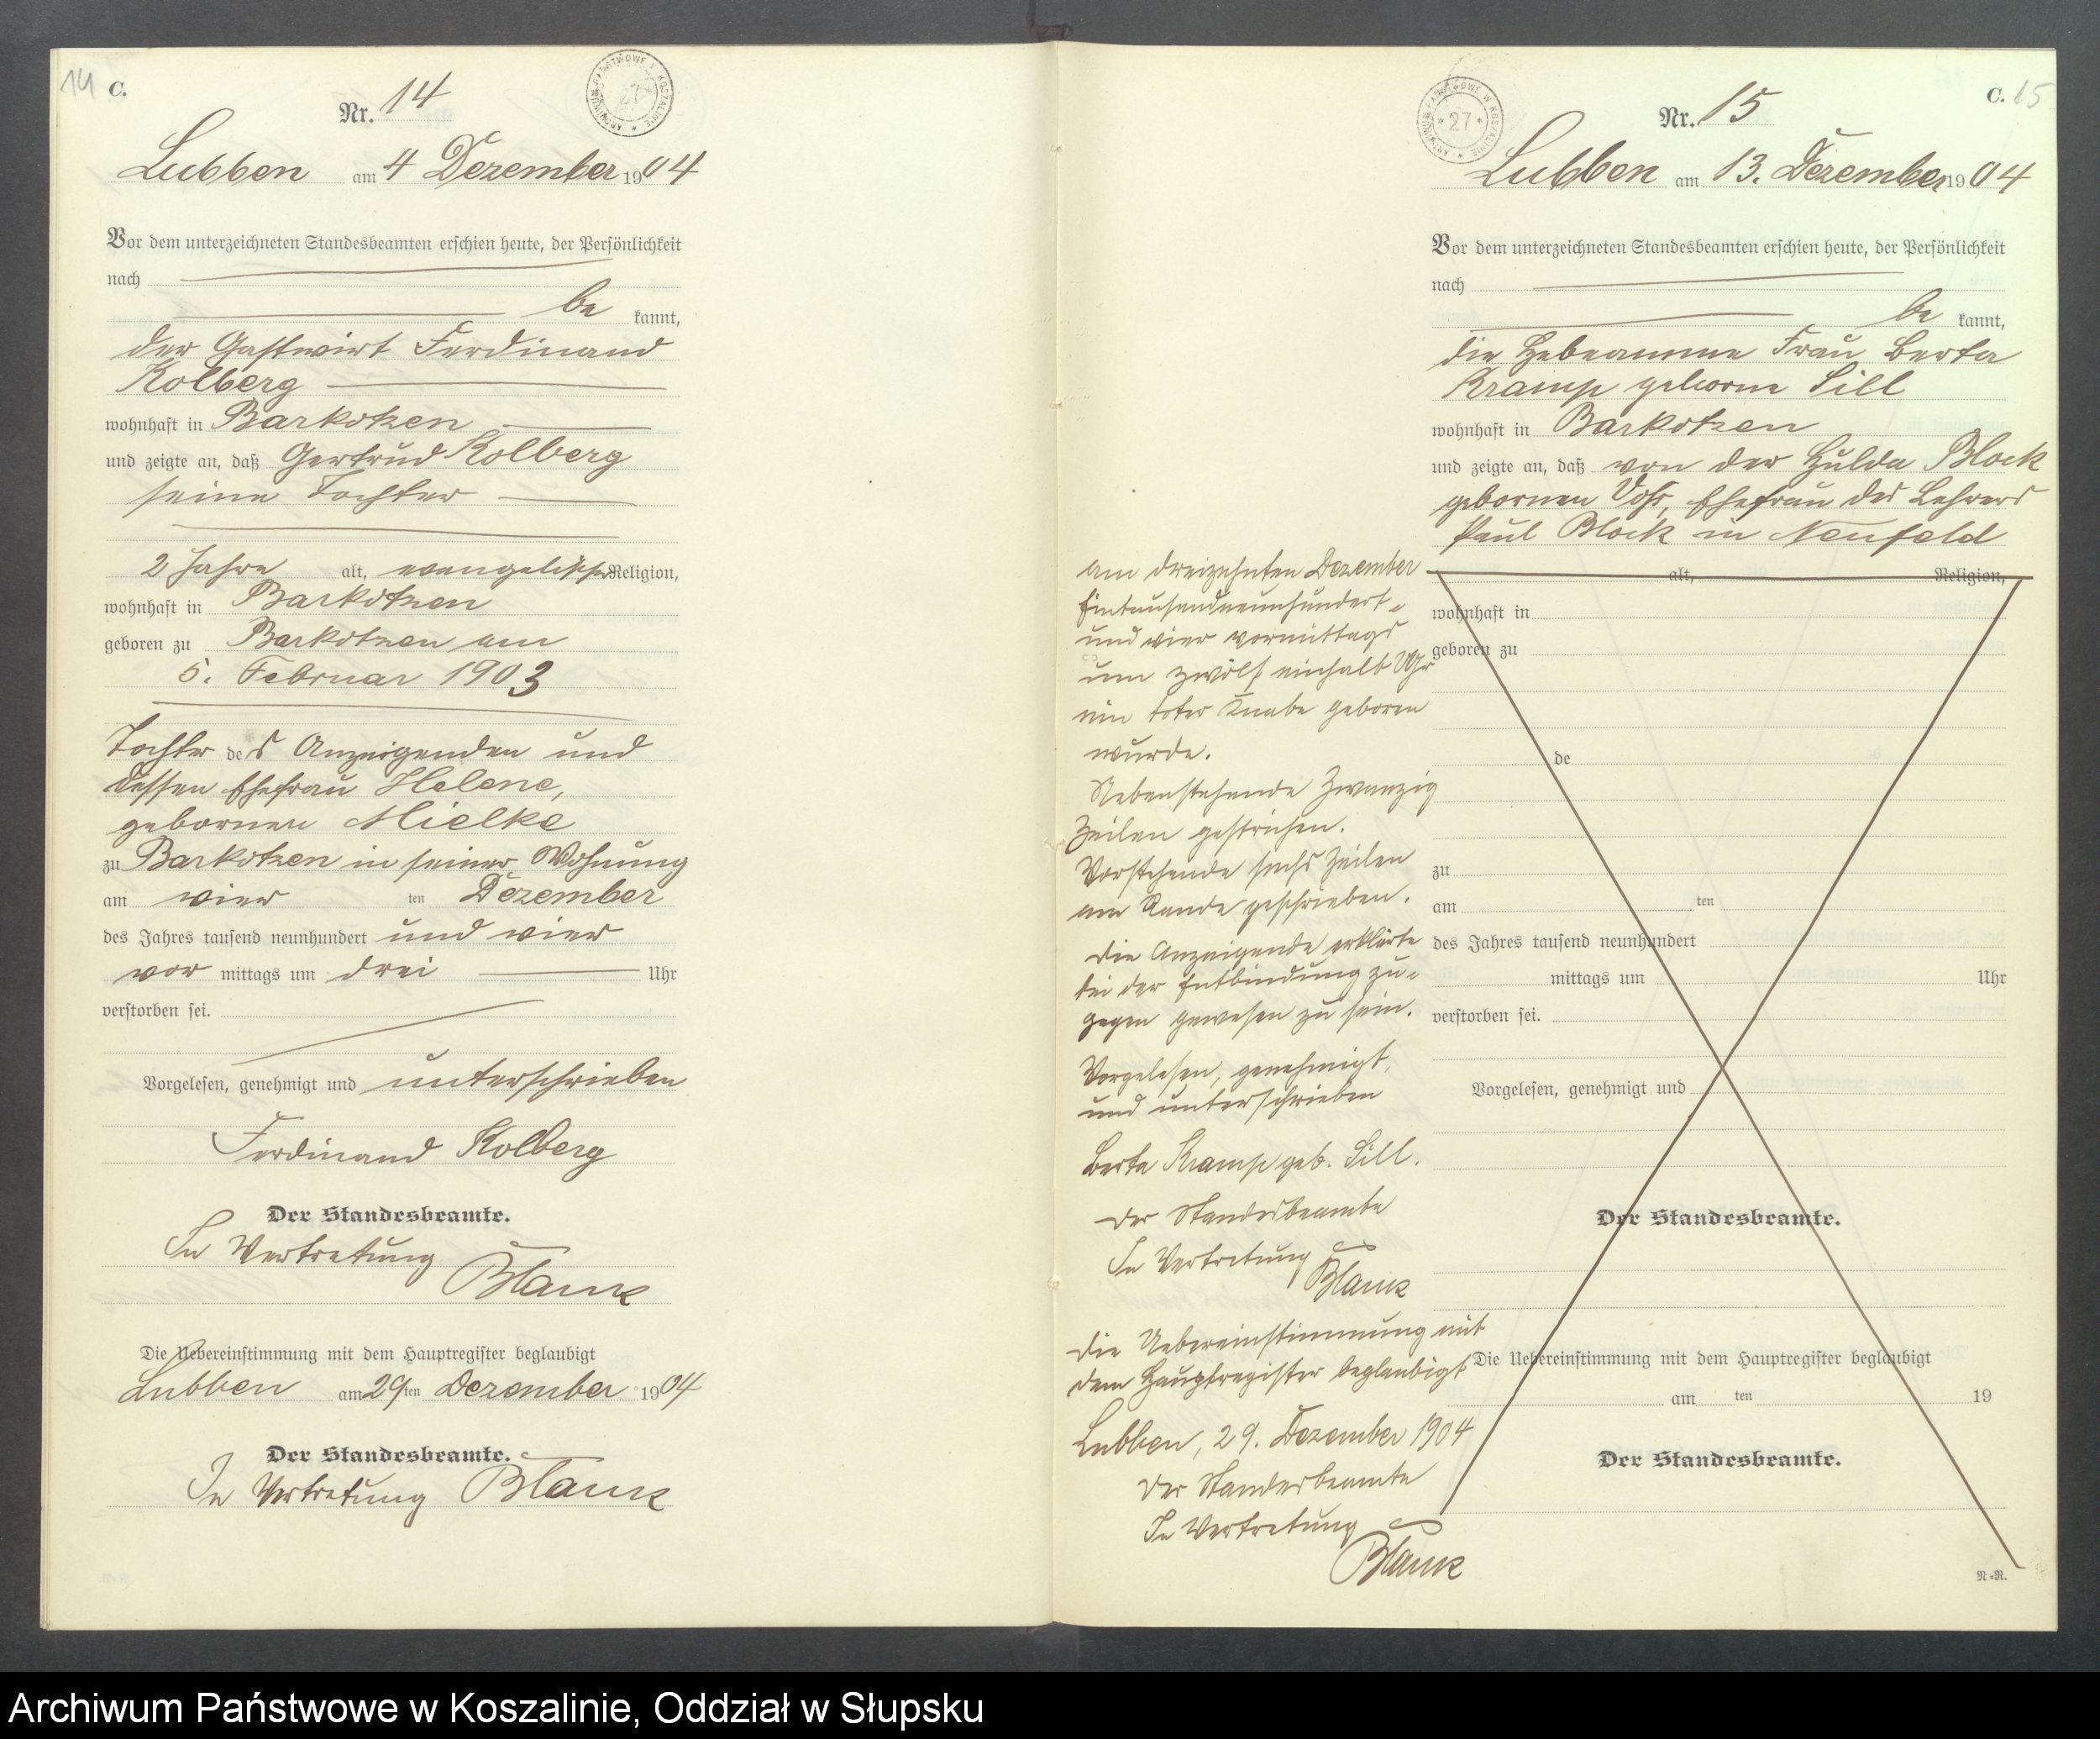 14 C.
Nr. 14
ARCHIWUM PAŃSTWOWE W KOSZALINIE * 27 *
Lubben am 4 Dezember 1904
Vor dem unterzeichneten Standesbeamten erschien heute, der Persönlichkeit
nach
be kannt,
der Gastwirt Ferdinand
Kolberg
wohnhaft in Barkotzen
und zeigte an, daß Gertrud Kolberg
seine Tochter
2 Jahre alt, evangelischer Religion,
wohnhaft in Barkotzen
geboren zu Barkotzen am
5. Februar 1903
Tochter des Anzeigenden und
dessen Ehefrau Helene,
gebornen Mielke
zu Barkotzen in seiner Wohnung
am vier ten Dezember
des Jahres tausend neunhundert und vier
vor mittags um drei Uhr
verstorben sei.
Vorgelesen, genehmigt und unterschrieben
Ferdinand Kolberg
Der Standesbeamte.
In Vertretung
Die Uebereinstimmung mit dem Hauptregister beglaubigt
Lubben am 29ten Dezember 1904
Der Standesbeamte.
In Vertretung
C. 15
Nr. 15
ARCHIWUM PAŃSTWOWE W KOSZALINIE * 27 *
Lubben am 13. Dezember 1904
Vor dem unterzeichneten Standesbeamten erschien heute, der Persönlichkeit
nach
be kannt,
die Hebeamme Frau Berta
Kramp geborne Sill
wohnhaft in Barkotzen
und zeigte an, daß von der Hulda Block
gebornen Voß, Ehefrau des Lehrers
Paul Block in Neufeld
alt, Religion,
wohnhaft in
geboren zu
de
zu
am ten
des Jahres tausend neunhundert
mittags um Uhr
verstorben sei.
Vorgelesen, genehmigt und
Der Standesbeamte.
Die Uebereinstimmung mit dem Hauptregister beglaubigt
am ten 19
Der Standesbeamte.
N=R.
am dreizehnten Dezember
Eintausendneunhundert-
und vier vormittags
um zwölf einhalb Uhr
ein toter Knabe geboren
wurde.
Nebenstehende Zwanzig
Zeilen gestrichen.
Vorstehende sechs Zeilen
am Rande geschrieben.
Die Anzeigende erklärte
bei der Entbindung zu-
gegen gewesen zu sein.
Vorgelesen, genehmigt,
und unterschrieben
Berta Kramp geb. Sill.
Der Standesbeamte
In Vertretung
Die Uebereinstimmung mit
dem Hauptregister beglaubigt
Lubben, 29. Dezember 1904
Der Standesbeamte
In Vertretung
Archiwum Państwowe w Koszalinie, Oddział w Słupsku